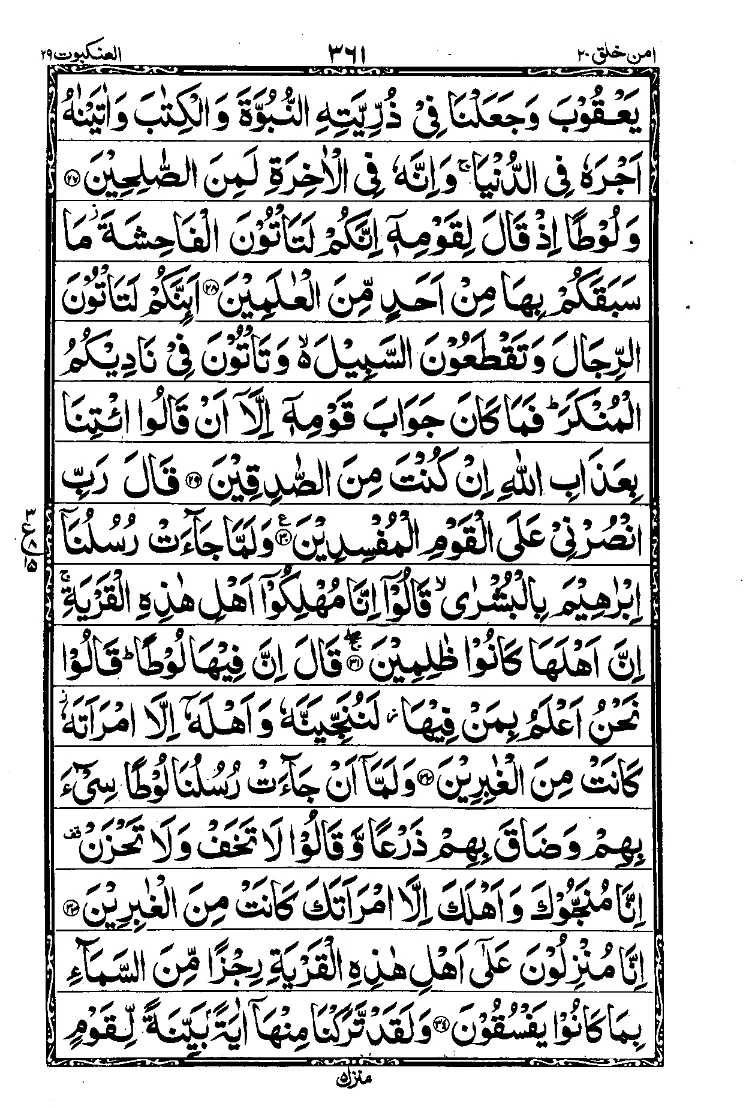 امن خلق ٢٠ ٣٦١ العنكبوت ٢٩
يَعۡقُوۡبَ وَجَعَلۡنَا فِىۡ ذُرِّيَّتِهِ النُّبُوَّةَ وَالۡكِتٰبَ وَاٰتَيۡنٰهُ
اَجۡرَهٗ فِى الدُّنۡيَا ۚ وَاِنَّهٗ فِى الۡاٰخِرَةِ لَمِنَ الصّٰلِحِيۡنَ ﴿٢٧﴾
وَلُوۡطًا اِذۡ قَالَ لِقَوۡمِهٖۤ اِنَّكُمۡ لَتَاۡتُوۡنَ الۡفَاحِشَةَ ز مَا
سَبَقَكُمۡ بِهَا مِنۡ اَحَدٍ مِّنَ الۡعٰلَمِيۡنَ ﴿٢٨﴾ اَئِنَّكُمۡ لَتَاۡتُوۡنَ
الرِّجَالَ وَتَقۡطَعُوۡنَ السَّبِيۡلَ ۙ۬ وَتَاۡتُوۡنَ فِىۡ نَادِيۡكُمُ
الۡمُنۡكَرَ ؕ فَمَا كَانَ جَوَابَ قَوۡمِهٖۤ اِلَّاۤ اَنۡ قَالُوا ائۡتِنَا
بِعَذَابِ اللّٰهِ اِنۡ كُنۡتَ مِنَ الصّٰدِقِيۡنَ ﴿٢٩﴾ قَالَ رَبِّ
انْصُرۡنِىۡ عَلَى الۡقَوۡمِ الۡمُفۡسِدِيۡنَ ﴿٣٠﴾ ع وَلَمَّا جَآءَتۡ رُسُلُنَاۤ
اِبۡرٰهِيۡمَ بِالۡبُشۡرٰى ۙ قَالُوۡۤا اِنَّا مُهۡلِكُوۡۤا اَهۡلِ هٰذِهِ الۡقَرۡيَةِ ۚ
اِنَّ اَهۡلَهَا كَانُوۡا ظٰلِمِيۡنَ ﴿٣١﴾ قَالَ اِنَّ فِيۡهَا لُوۡطًا ؕ قَالُوۡا
نَحۡنُ اَعۡلَمُ بِمَنۡ فِيۡهَا لَنُنَجِّيَنَّهٗ وَاَهۡلَهٗۤ اِلَّا امۡرَاَتَهٗ ز
كَانَتۡ مِنَ الۡغٰبِرِيۡنَ ﴿٣٢﴾ وَلَمَّاۤ اَنۡ جَآءَتۡ رُسُلُنَا لُوۡطًا سِىۡٓءَ
بِهِمۡ وَضَاقَ بِهِمۡ ذَرۡعًا وَّقَالُوۡا لَا تَخَفۡ وَلَا تَحۡزَنۡ قف
اِنَّا مُنَجُّوۡكَ وَاَهۡلَكَ اِلَّا امۡرَاَتَكَ كَانَتۡ مِنَ الۡغٰبِرِيۡنَ ﴿٣٣﴾
اِنَّا مُنۡزِلُوۡنَ عَلٰٓى اَهۡلِ هٰذِهِ الۡقَرۡيَةِ رِجۡزًا مِّنَ السَّمَآءِ
بِمَا كَانُوۡا يَفۡسُقُوۡنَ ﴿٣٤﴾ وَلَقَدْ تَّرَكۡنَا مِنۡهَاۤ اٰيَةًۢ بَيِّنَةً لِّقَوۡمٍ
منزل ٥